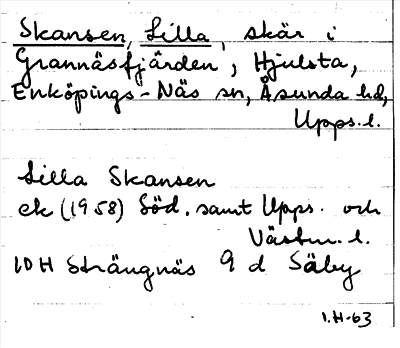 Skansen, Lilla, skär i
Grannäsfjärden, Hjulsta,
Enköpings-Näs sn, Åsunda hd,
Upps. l.
Lilla Skansen
ek (1958) Söd. samt Upps. och
Västm. l.
10H Strängnäs 9 d Säby
1.H-63